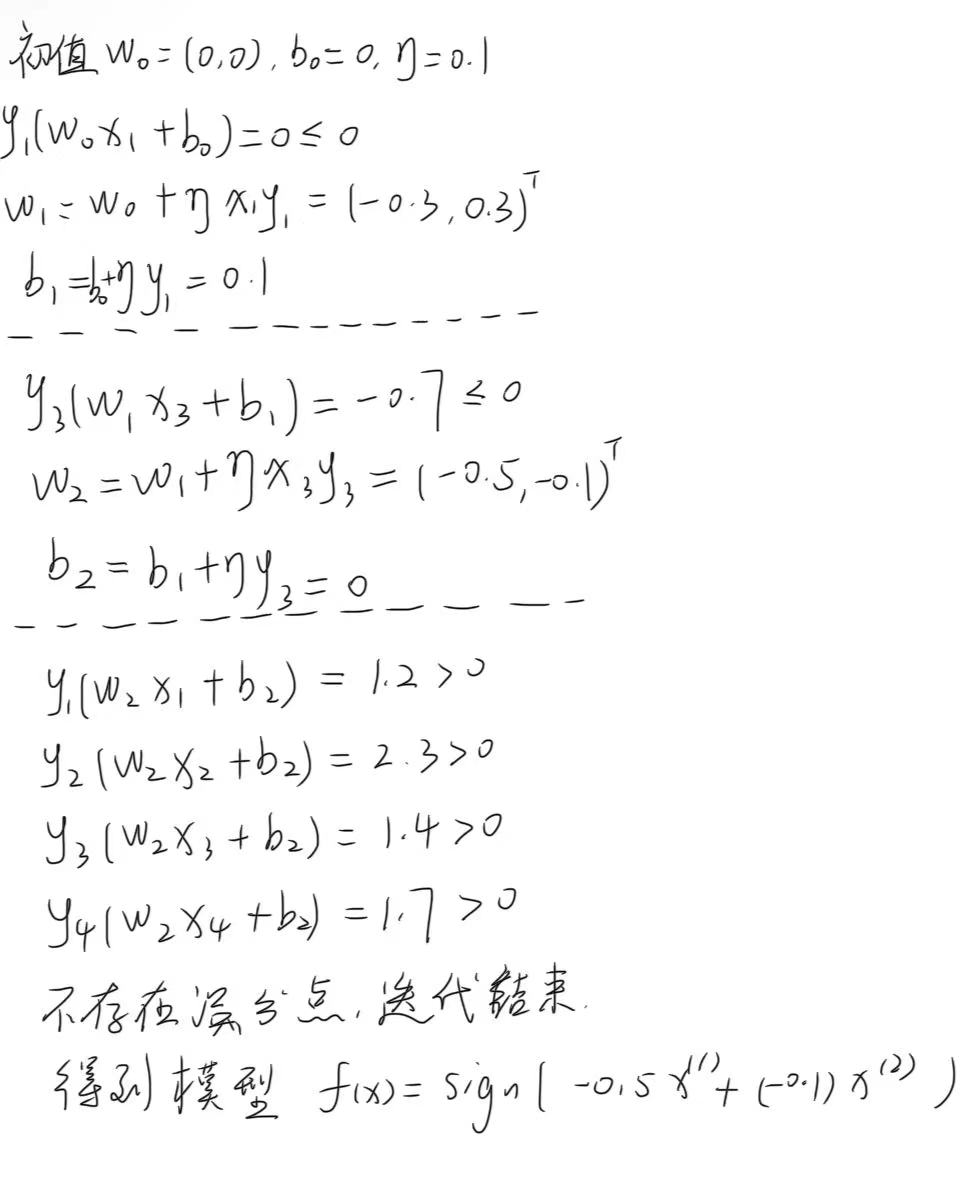 初值 w₀=(0,0), b₀=0, η=0.1
y₁(w₀x₁+b₀)=0≤0
w₁=w₀+ηx₁y₁=(-0.3,0.3)ᵀ
b₁=b₀+ηy₁=0.1
y₃(w₁x₃+b₁)=-0.7≤0
w₂=w₁+ηx₃y₃=(-0.5,-0.1)ᵀ
b₂=b₁+ηy₃=0
y₁(w₂x₁+b₂)=1.2>0
y₂(w₂x₂+b₂)=2.3>0
y₃(w₂x₃+b₂)=1.4>0
y₄(w₂x₄+b₂)=1.7>0
不存在误分点,迭代结束.
得到模型 f(x)=sign(-0.5x⁽¹⁾+(-0.1)x⁽²⁾)